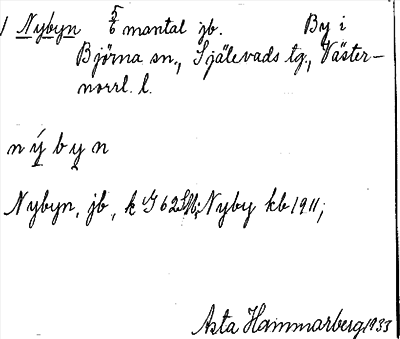 1 Nybyn 5/6 mantal jb. By i
Björna sn., Själevads tg., Väster-
norrl. l.
nýbyn
Nybyn, jb, k G 62 SO; Nyby kb 1911;
Asta Hammarberg 1933